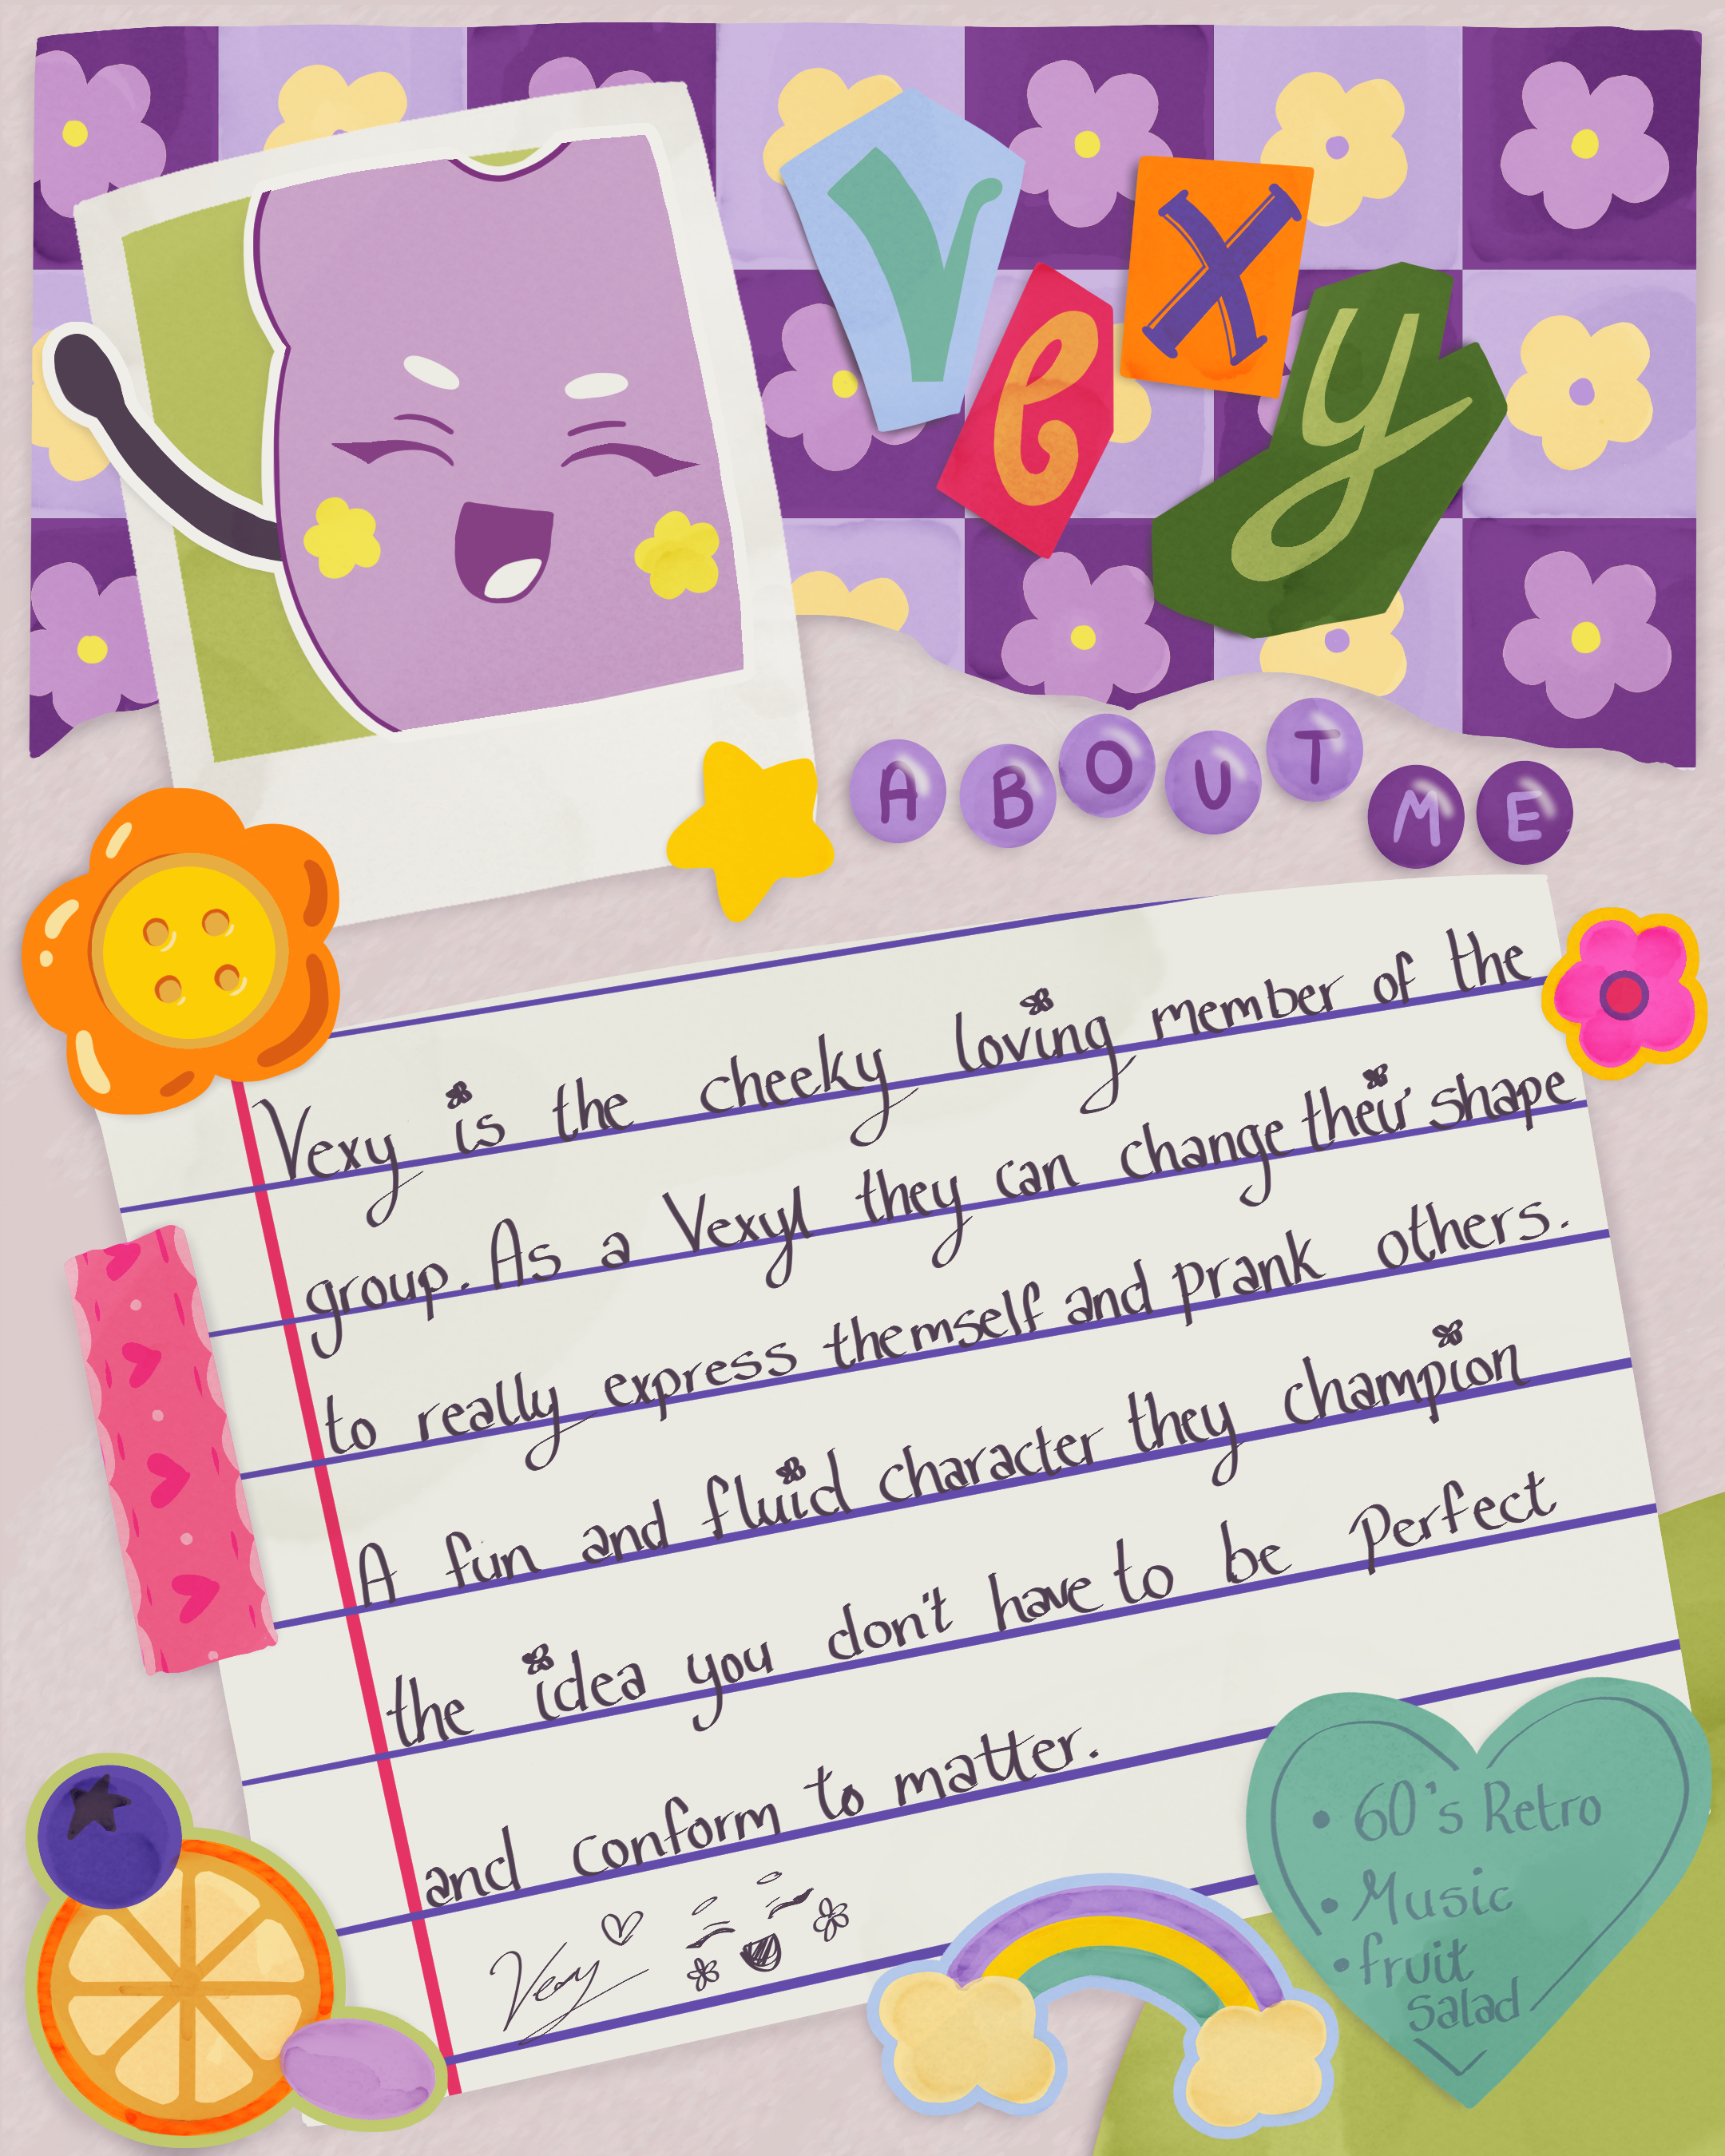 Vexy
ABOUT ME
Vexy is the cheeky loving member of the
group. As a Vexyl they can change their shape
to really express themself and prank others.
A fun and fluid character they champion
the idea you don't have to be Perfect
and conform to matter.
Vexy
• 60's Retro
• Music
• fruit
salad